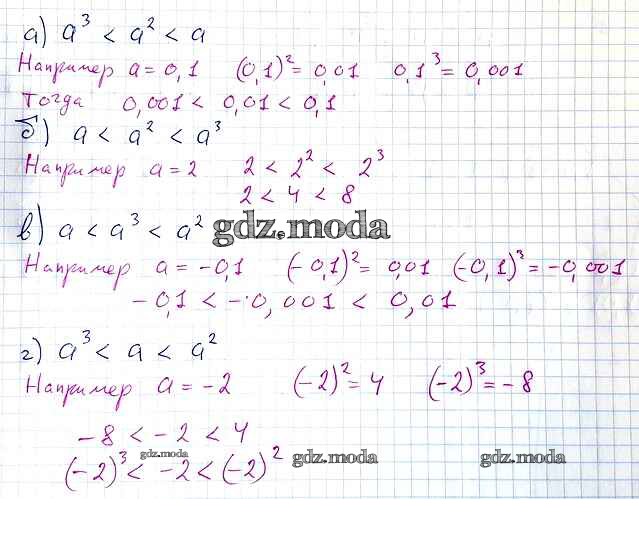 а) a³ < a² < a
Например a = 0,1 (0,1)² = 0,01 0,1³ = 0,001
Тогда 0,001 < 0,01 < 0,1
б) a < a² < a³
Например a = 2 2 < 2² < 2³
2 < 4 < 8
в) a < a³ < a² gdz.moda
Например a = -0,1 (-0,1)² = 0,01 (-0,1)³ = -0,001
-0,1 < -0,001 < 0,01
г) a³ < a < a²
Например a = -2 (-2)² = 4 (-2)³ = -8
-8 < -2 < 4
gdz.moda
(-2)³ < -2 < (-2)² gdz.moda gdz.moda